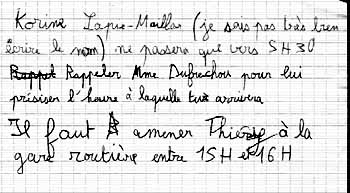 Korine Lapue-Maillos (je sais pas très bien
écrire le nom) ne passera que vers 5H30
Rappeler Mme Dufrechou pour lui
présiser l'heure à laquelle tu arrivera
Il faut amener Thierry à la
gare routière entre 15H et 16H